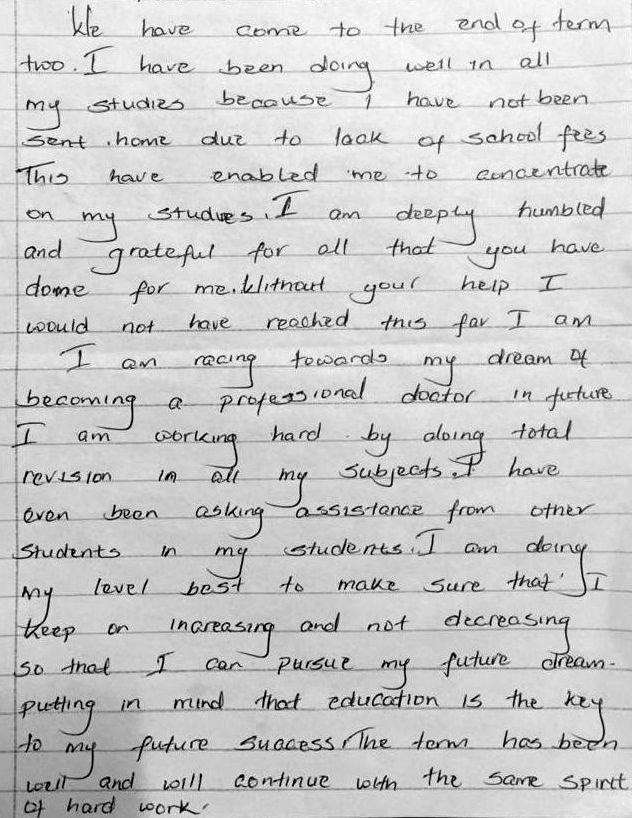 We have come to the end of term
two. I have been doing well in all
my studies because I have not been
sent home due to lack of school fees
This have enabled me to concentrate
on my studies. I am deeply humbled
and grateful for all that you have
dome for me. Without your help I
would not have reached this far I am
I am racing towards my dream of
becoming a professional doctor in future
I am working hard by doing total
revision in all my subjects. I have
even been asking assistance from other
students in my students. I am doing
my level best to make sure that I
keep on increasing and not decreasing
so that I can pursue my future dream-
putting in mind that education is the key
to my future success. The term has been
well and will continue with the same spirit
of hard work.